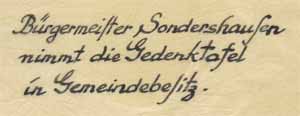 Bürgermeiſter Sondershauſen
nimmt die Gedenktafel
in Gemeindebeſitz.